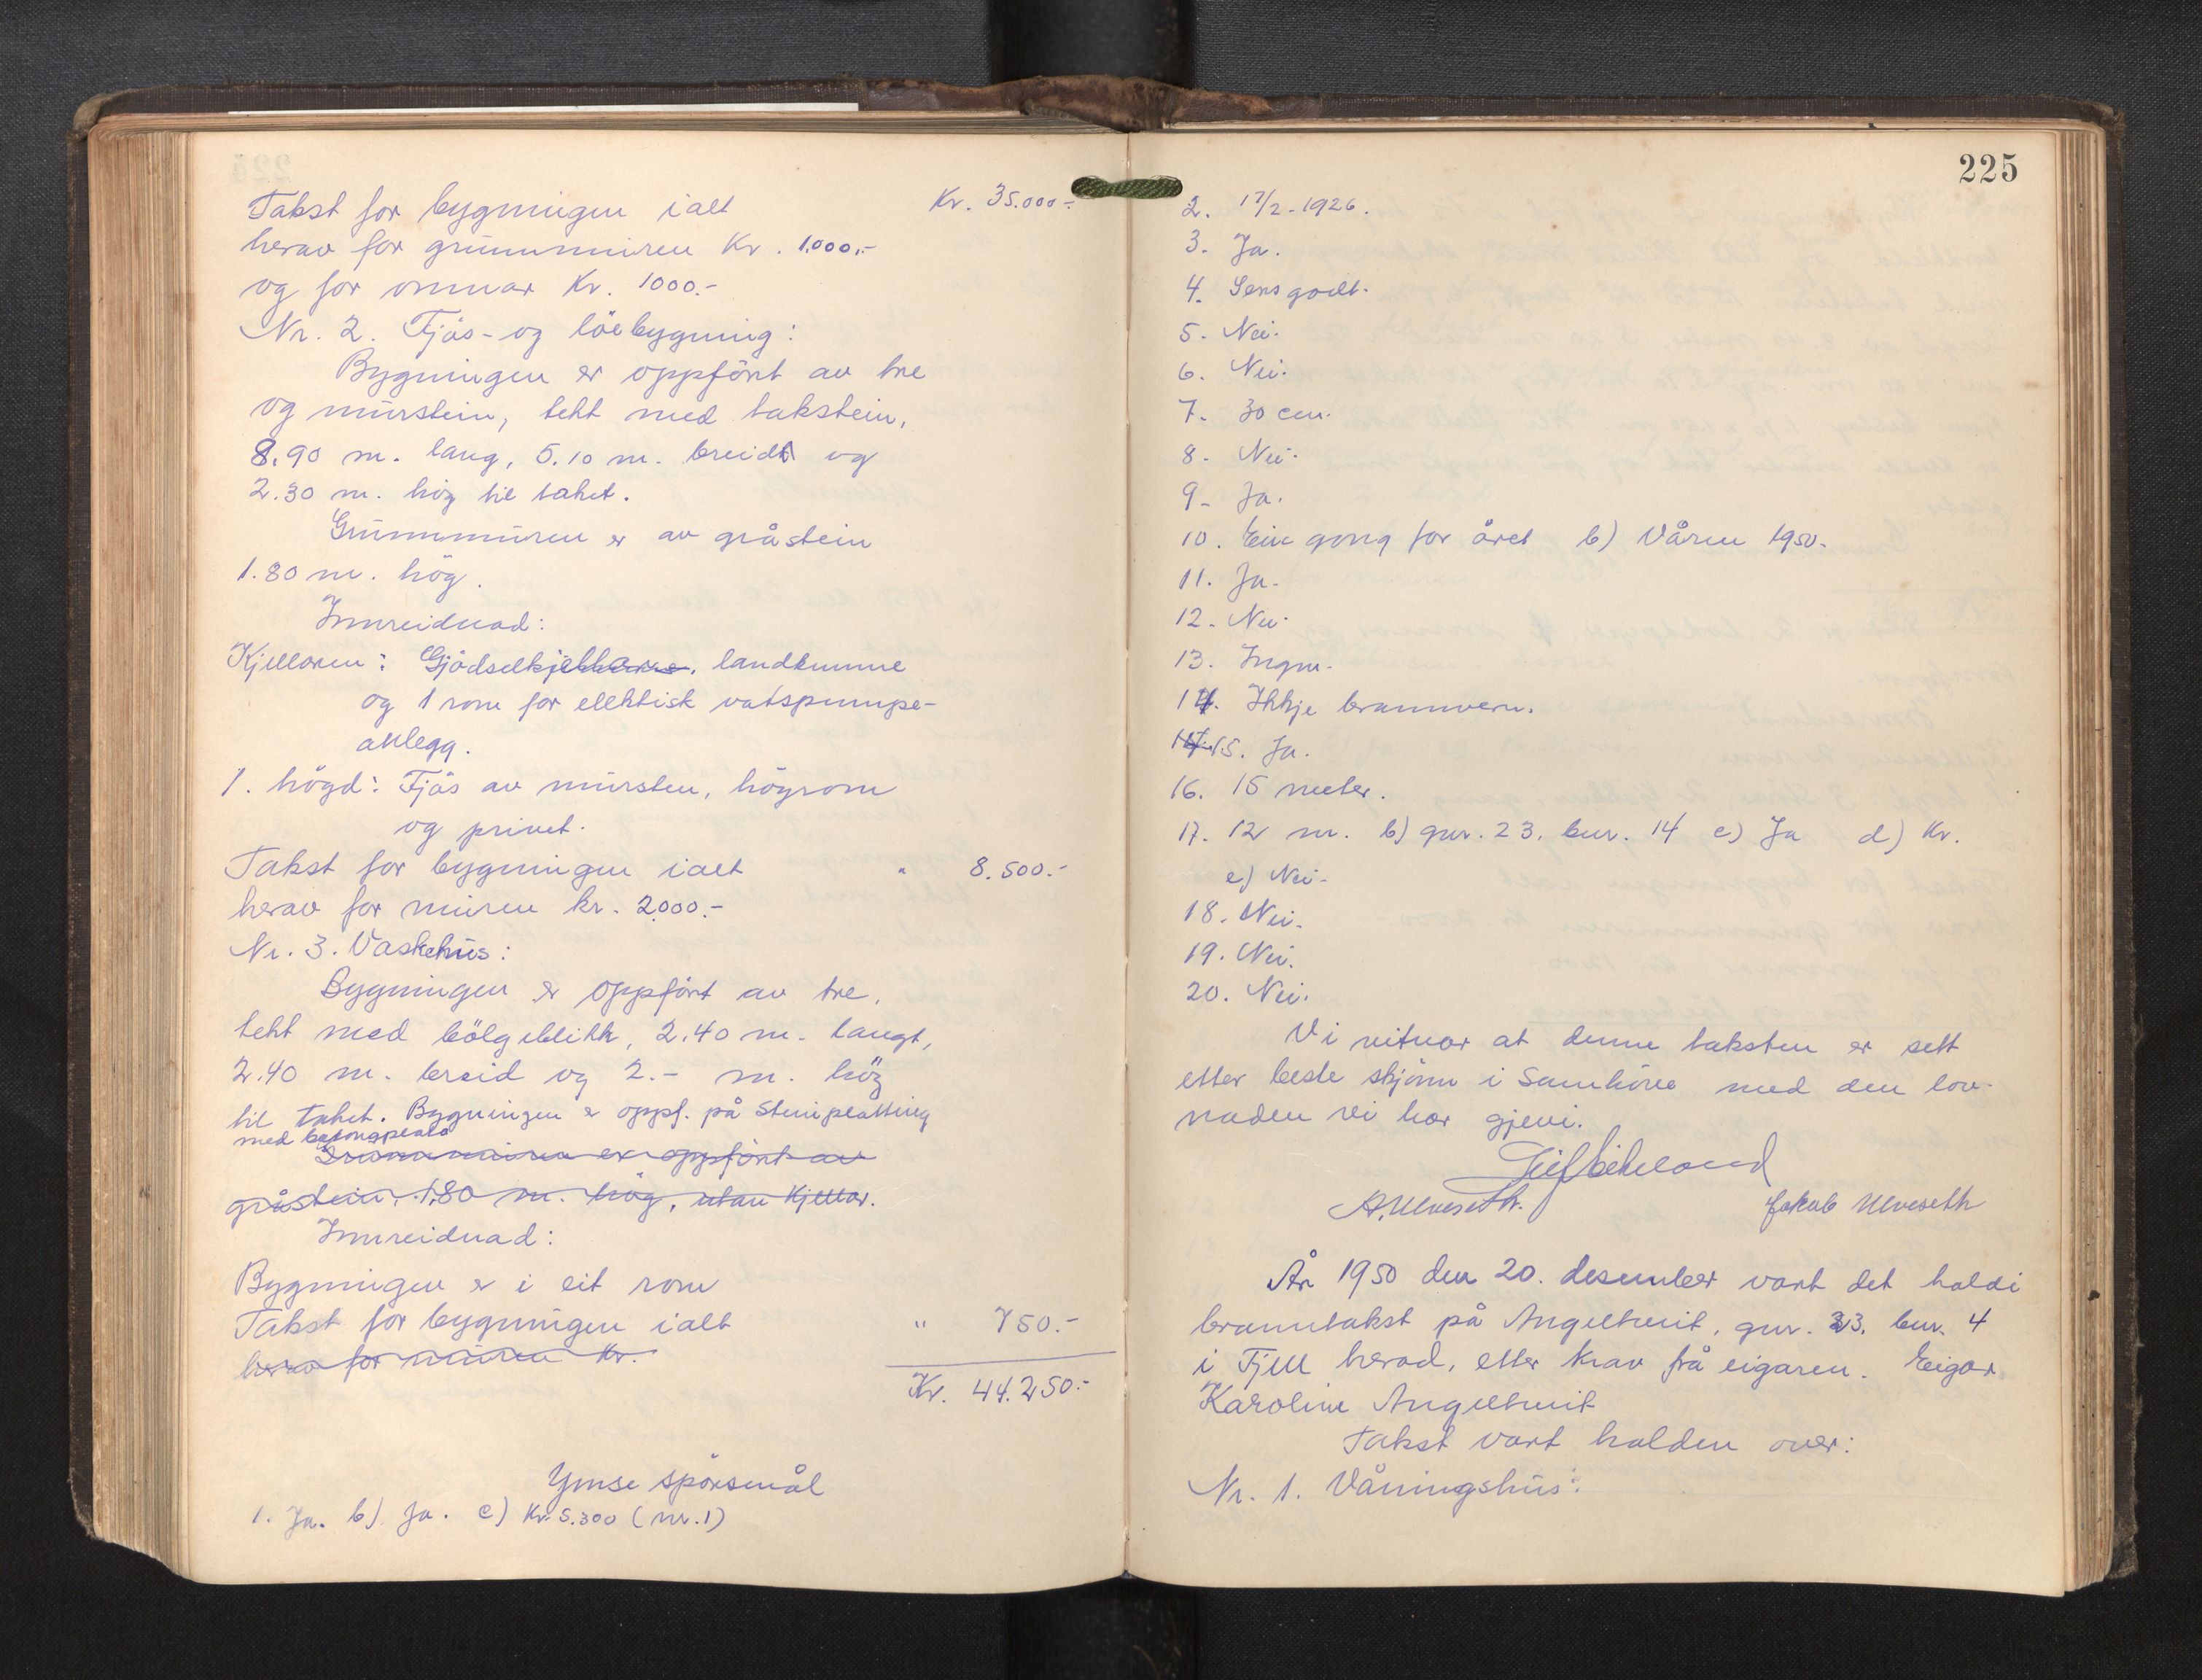 Takst for bygningen ialt Kr. 35.000.-
herav for grunnmuren Kr. 1.000,-
og for omnar Kr. 1000.-
Nr. 2. Fjös- og löebygning:
Bygningen er oppfört av tre
og murstein, tekt med takstein,
8.90 m. lang, 5.10 m. breid og
2.30 m. hög til taket.
Grunnmuren er av gråstein
1.80 m. hög.
Innreidnad:
Kjellaren: Gjödselkjellare, landkumme
og 1 rom for elektisk vatspumpe-
anlegg.
1. högd: Fjös av mursten, höyrom
og privet.
Takst for bygningen ialt " 8.500.-
herav for muren kr. 2000.-
Nr. 3. Vaskehus:
Bygningen er oppfört av tre,
tekt med bölgeblikk, 2.40 m. langt,
2.40 m. breid og 2.- m. hög
til taket. Bygningen e oppf. på Steinplatting
med betongplata
Grunnmuren er oppfört av
gråstein, 1.80 m. hög, utan Kjellar.
Innreidnad:
Bygningen er i eit rom
Takst for bygningen ialt " 750.-
herav for muren Kr.
Kr. 44.250.-
Ymse spörsmål
1. Ja. b) Ja. c) Kr. 5.300 (nr. 1)
225
2. 17/2-1926.
3. Ja.
4. Sers godt.
5. Nei.
6. Nei.
7. 30 cm.
8. Nei.
9. Ja.
10. Ein gong for året b) Våren 1950.
11. Ja.
12. Nei.
13. Ingen.
14. Ikkje brannvern.
15. Ja.
16. 15 meter.
17. 12 m. b) gnr. 23. bnr. 14 c) Ja d) Kr.
e) Nei.
18. Nei.
19. Nei.
20. Nei.
Vi vitnar at denne taksten er sett
etter beste skjönn i Samhöve med den lov-
naden vi har gjevi.
A. Ulveseth. Jakob Ulveseth
År 1950 den 20. desember vart det haldi
branntakst på Angeltveit, gnr. 23. bnr. 4
i Fjell herad, etter krav frå eigaren. Eigar
Karoline Angeltveit
Takst vart halden over:
Nr. 1. Våningshus: